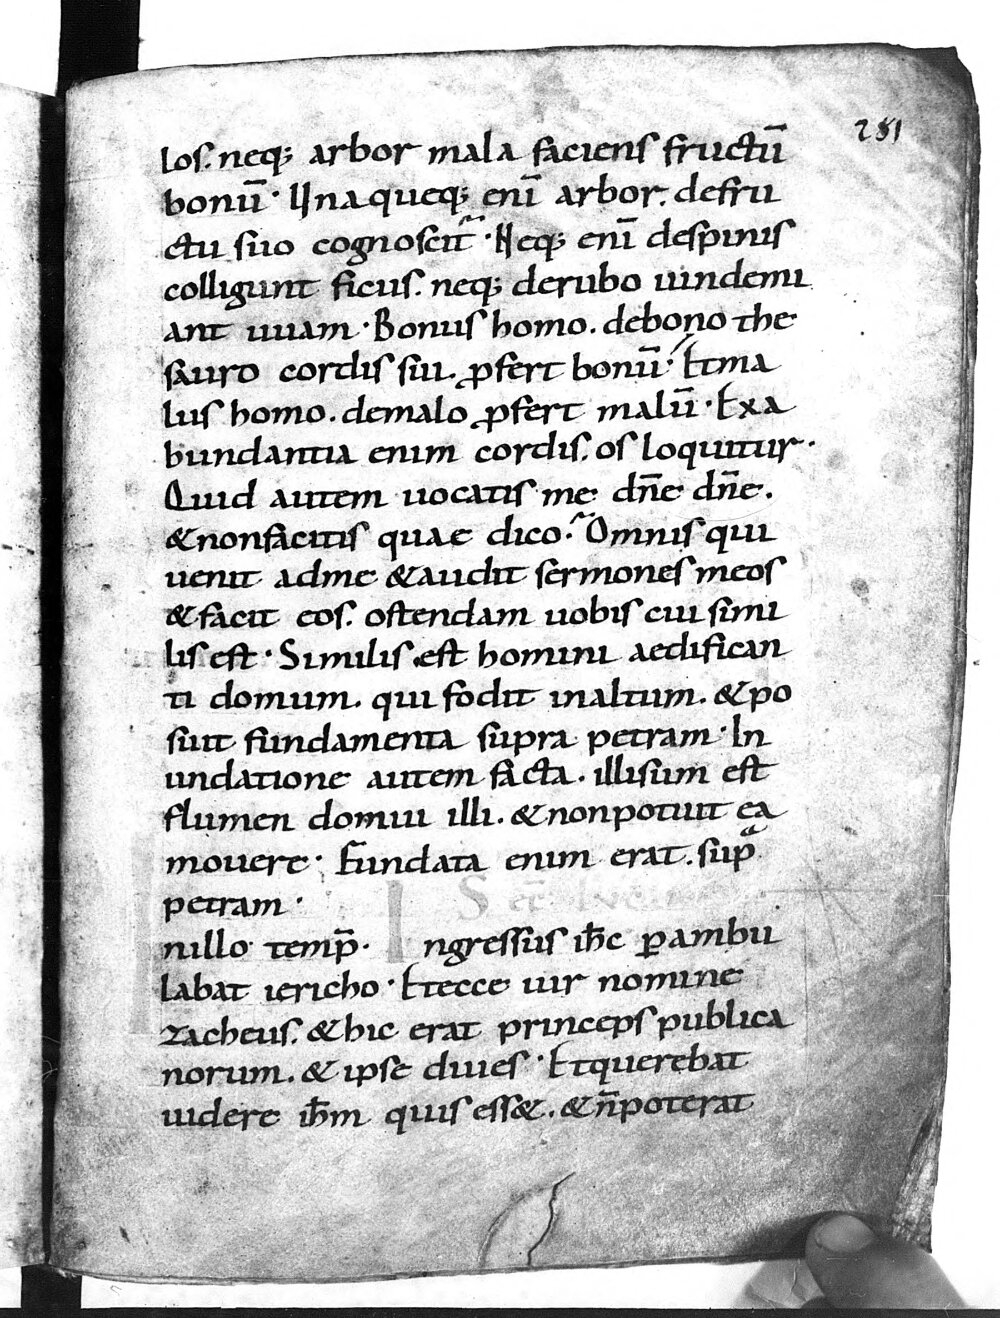 251
los. neq; arbor mala faciens fructū
bonū · Unaqueq; enī arbor. defru
ctu suo cognoscit̃ · Neq; enī despinis
colligunt ficus. neq; derubo uindemi
ant uuam · Bonus homo. debono the
sauro cordis sui. ꝓfert bonū · Etma
lus homo. demalo ꝓfert malū · Exa
bundantia enim cordis. os loquitur ·
Quid autem uocatis me dn̄e dn̄e.
&nonfacitis quae dico · Omnis qui
uenit adme &audit sermones meos
&facit eos. ostendam uobis cui simi
lis est · Similis est homini aedifican
ti domum. qui fodit inaltum. &po
suit fundamenta supra petram · In
undatione autem facta. illisum est
flumen domui illi. &nonpotuit ea
mouere · Fundata enim erat. sup̃
petram · Sec̄
nillo temp̄ · Ingressus ih̄c ꝑambu
labat iericho · Etecce uir nomine
zacheus. &hic erat princeps publica
norum. & ipse diues · Etquerebat
uidere ih̄m quis ess&. &n̄poterat